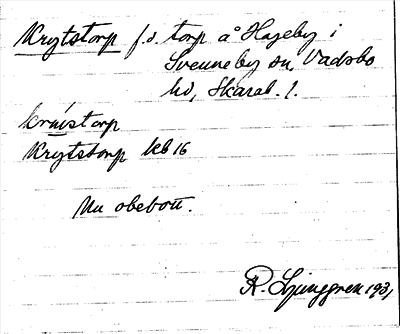 Krytstorp f.d. torp å Hageby i
Svenneby sn, Vadsbo
hd, Skarab. l.
krŭistorp
Krytstorp kb 16
Nu obebott.
R. Ljunggren 1931